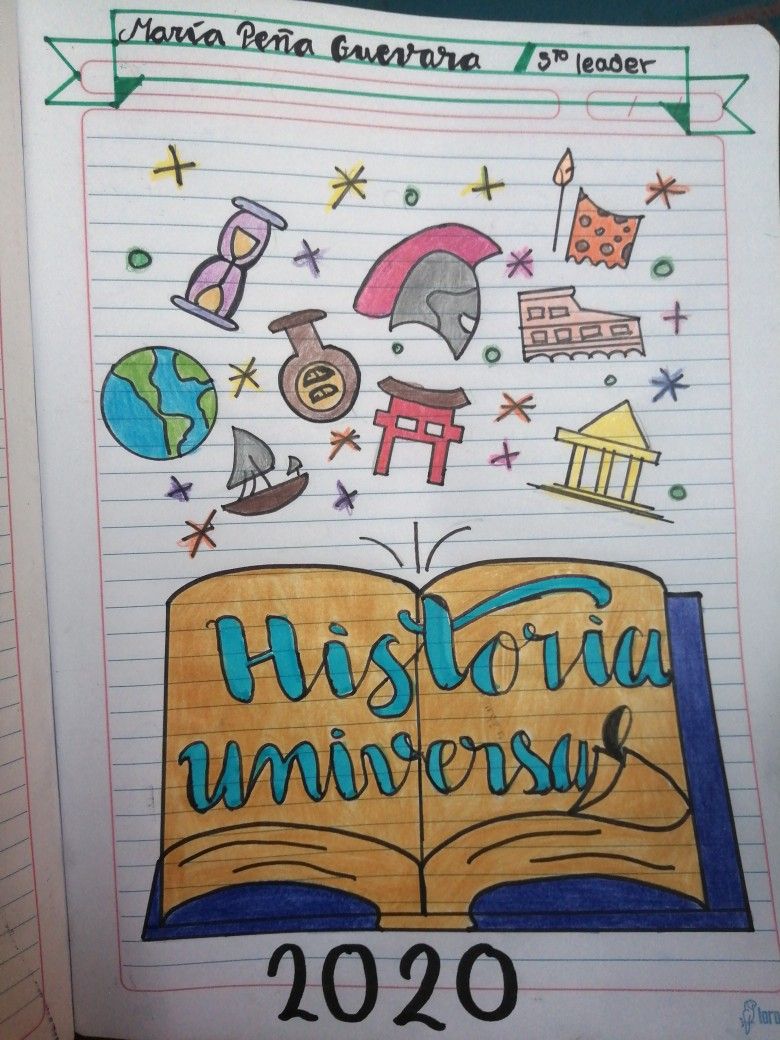 María Peña Guevara / 5to leader
Historia
universal
2020